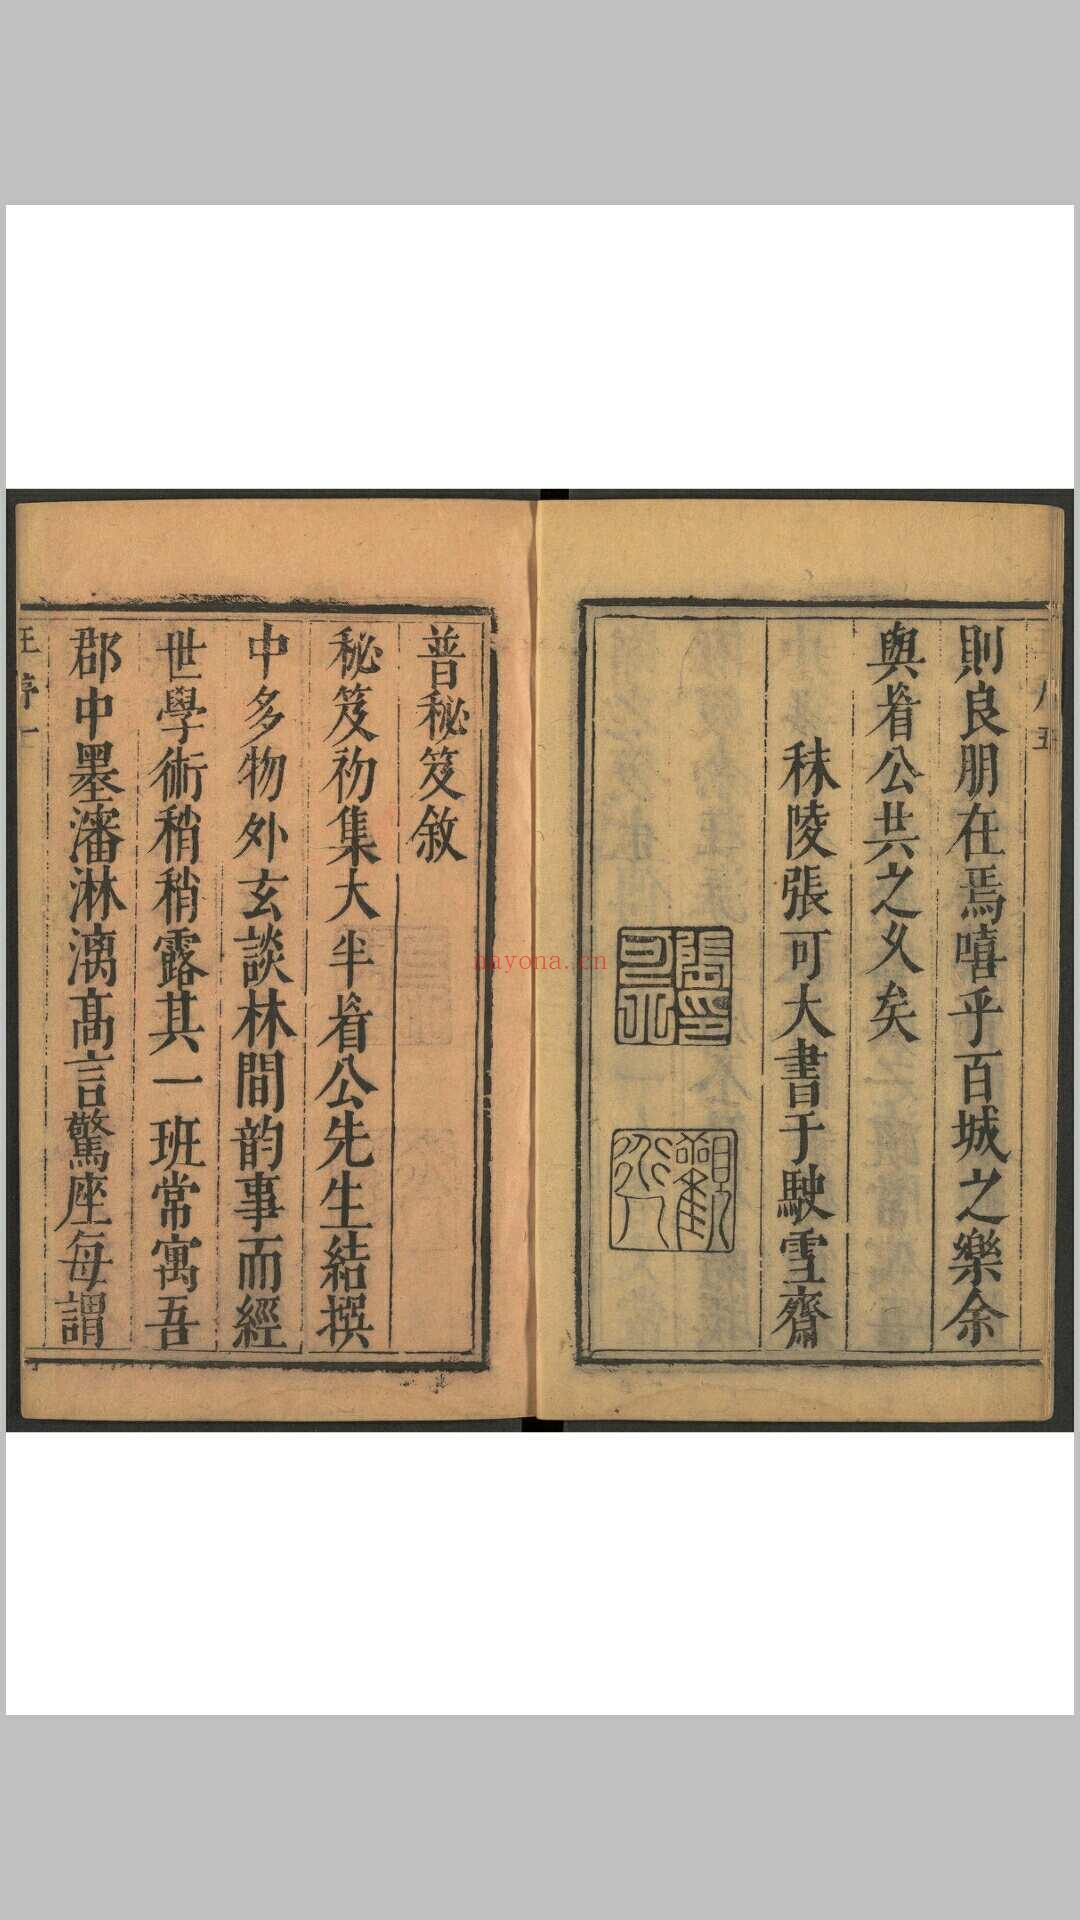 則良朋在焉嘻乎百城之樂余
與眷公共之乆矣
秣陵張可大書于駛雪齋
普秘笈敘
秘笈初集大半眷公先生結撰
中多物外玄談林間韵事而經
世學術稍稍露其一班常寓吾
郡中墨瀋淋漓髙言驚座每謂
nayona.cn